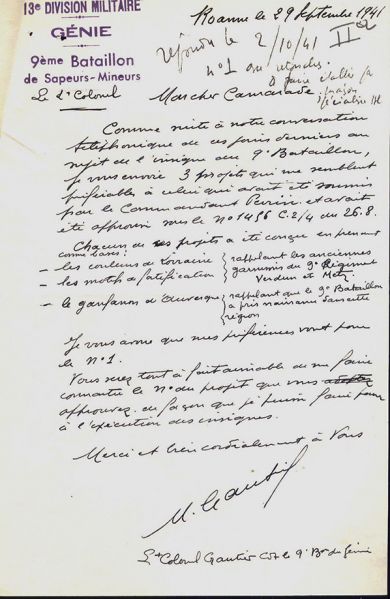 13e DIVISION MILITAIRE
GÉNIE
9ème Bataillon
de Sapeurs-Mineurs
Le Lt Colonel
Roanne le 29 Septembre 1941
répondu le 2/10/41
IIa
n° 1
Mon cher Camarade.
Comme suite à notre conversation
téléphonique de ces jours derniers au
sujet de l'insigne du 9e Bataillon,
je vous envoie 3 projets qui me semblent
préférables à celui qui avait été soumis
par le Commandant Perrin et avait
été approuvé sous le n° 1486 C.2/4 du 26.8.
Chacun de ces projets a été conçu en prenant
comme bases :
- les couleurs de Lorraine
- les motifs de fortification
rappelant les anciennes
garnisons du 9e Régiment
Verdun et Metz
- le gonfanon d'Auvergne
rappelant que le 9e Bataillon
a pris naissance dans cette
région
Je vous avoue que mes préférences vont pour
le N° 1.
Vous serez tout à fait aimable de me faire
connaître le N° du projet que vous
approuvez de façon que je puisse faire procéder
à l'exécution des insignes.
Merci et bien cordialement à Vous
M. Gautier
Lt Colonel Gautier Cdt le 9e Bon du Génie